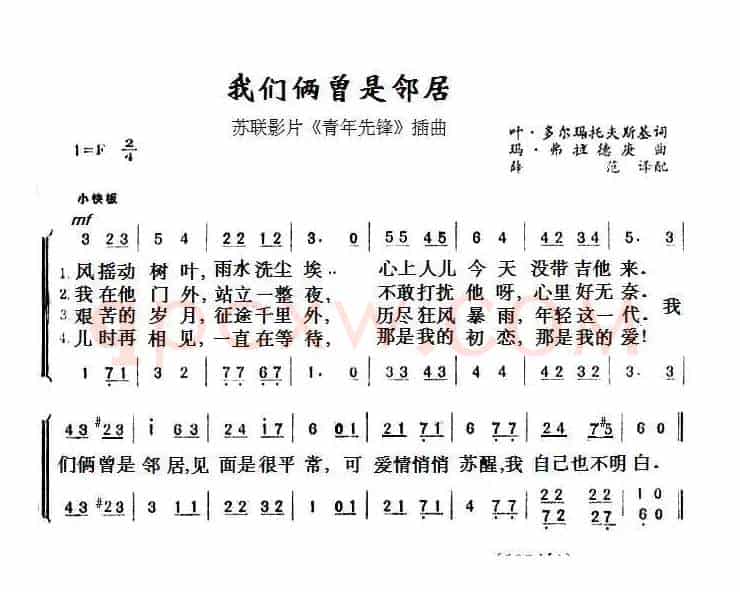 我们俩曾是邻居
苏联影片《青年先锋》插曲
1=F 2/4
叶·多尔玛托夫斯基词
玛·弗拉德庚 曲
薛 范 译配
小快板
mf
3 23 | 5 4 | 22 12 | 3. 0 | 55 45 | 6 4 | 42 32 | 5. 3 |
1. 风摇动 树叶, 雨水洗尘 埃. 心上人儿 今 天 没带吉他 来.
2. 我在他 门外, 站立一整 夜, 不敢打扰 他 呀, 心里好无 奈.
3. 艰苦的 岁月, 征途千里 外, 历尽狂风 暴 雨, 年轻这一 代. 我
4. 儿时再 相见, 一直在等 待, 那是我的 初 恋, 那是我的 爱!
qpcxw.com
1 71 | 3 2 | 77 67 | 1. 0 | 33 23 | 4 4 | 42 32 | 3. 3
43 #23 | i 63 | 24 i7 | 6 01 | 21 71 | 6 77 | 24 7#5 | 60 ||
们俩曾是 邻 居,见 面是很平 常, 可 爱情悄悄 苏醒,我 自己也不明 白.
43 #23 | 3 11 | 22 33 | 1. 01 | 21 71 | 4 77 | 22 22 | 10
22 27 | 60